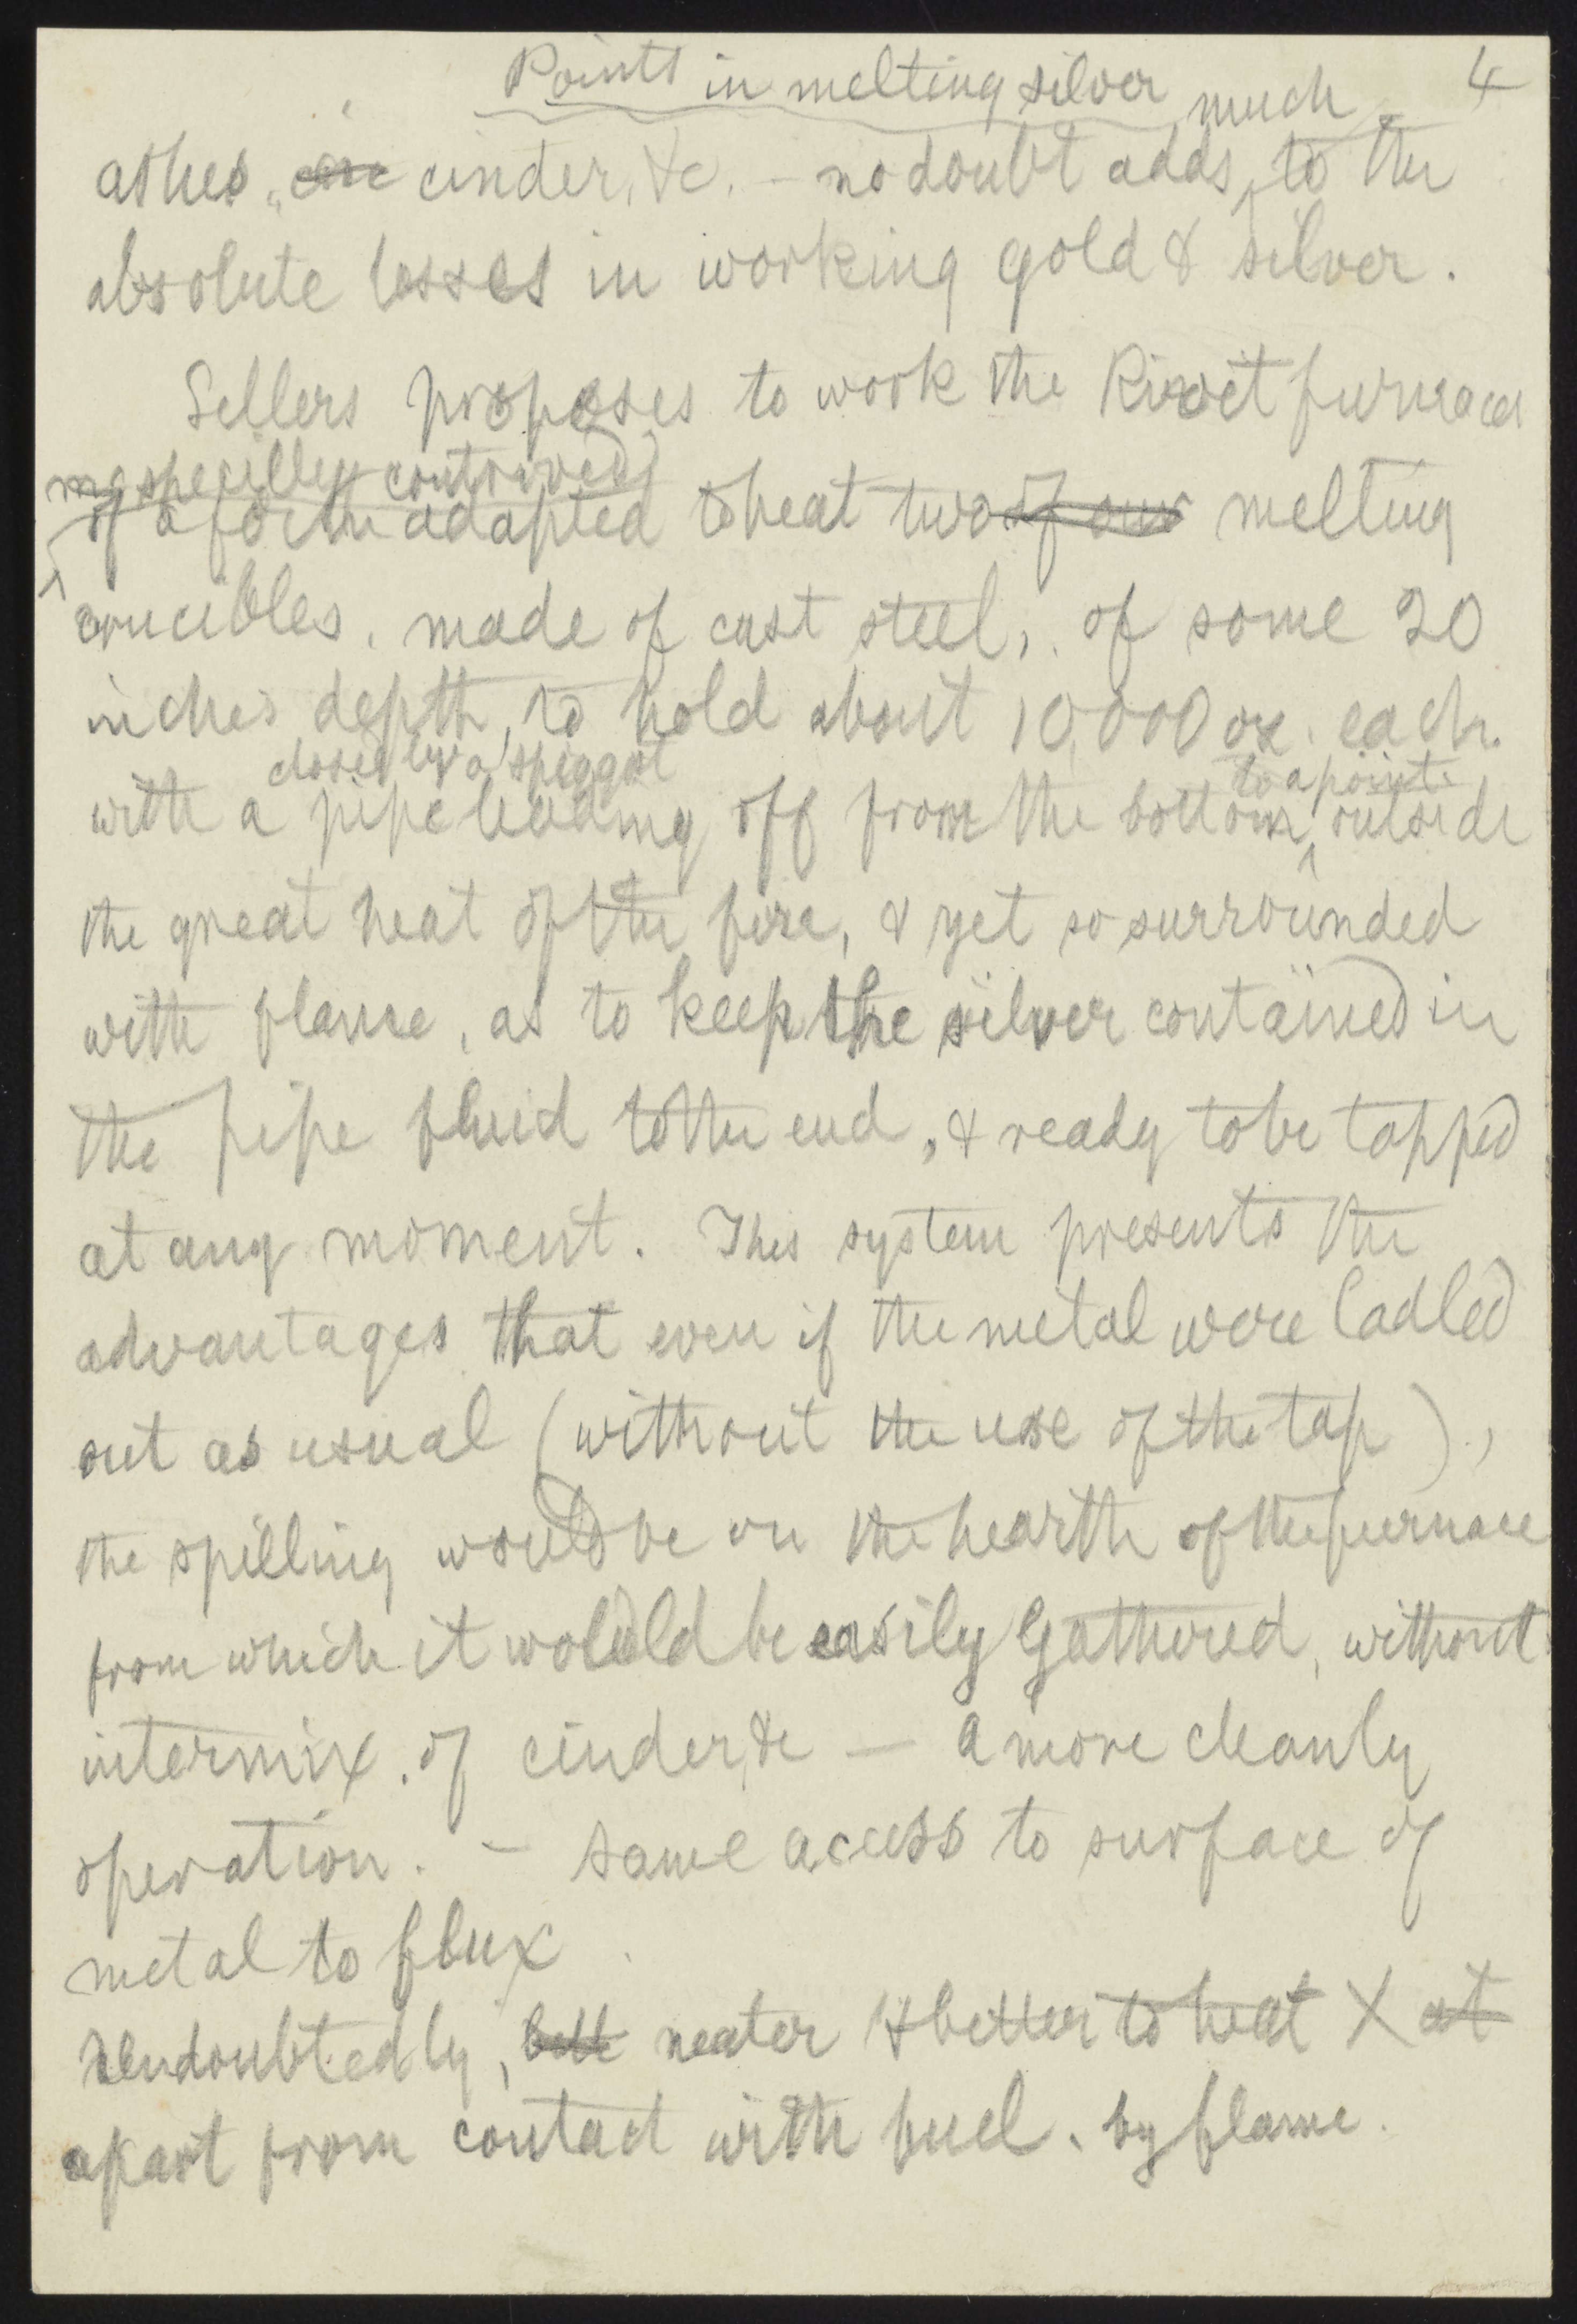 Points in melting silver 4
much
ashes, cinder, &c. – no doubt adds to the
absolute losses in working gold & silver.
Sellers proposes to work the Rivet furnace
specilly contrived
of a form adapted to heat two of our melting
crucibles. made of cast steel, of some 20
inches depth, to hold about 10,000 oz. each.
closed by a spiggot to a point
with a pipe leading off from the bottom, outside
the great heat of the fire, & yet so surrounded
with flame, as to keep the silver contained in
the pipe fluid to the end, & ready to be tapped
at any moment. This system presents the
advantages that even if the metal were ladled
out as usual (without the use of the tap),
the spilling would be on the hearth of the furnace
from which it would be easily gathered, without
intermix. of cinder, &c — a more cleanly
operation. – same access to surface of
metal to flux
Undoubtedly, neater & better to heat X at
apart from contact with fuel. by flame.